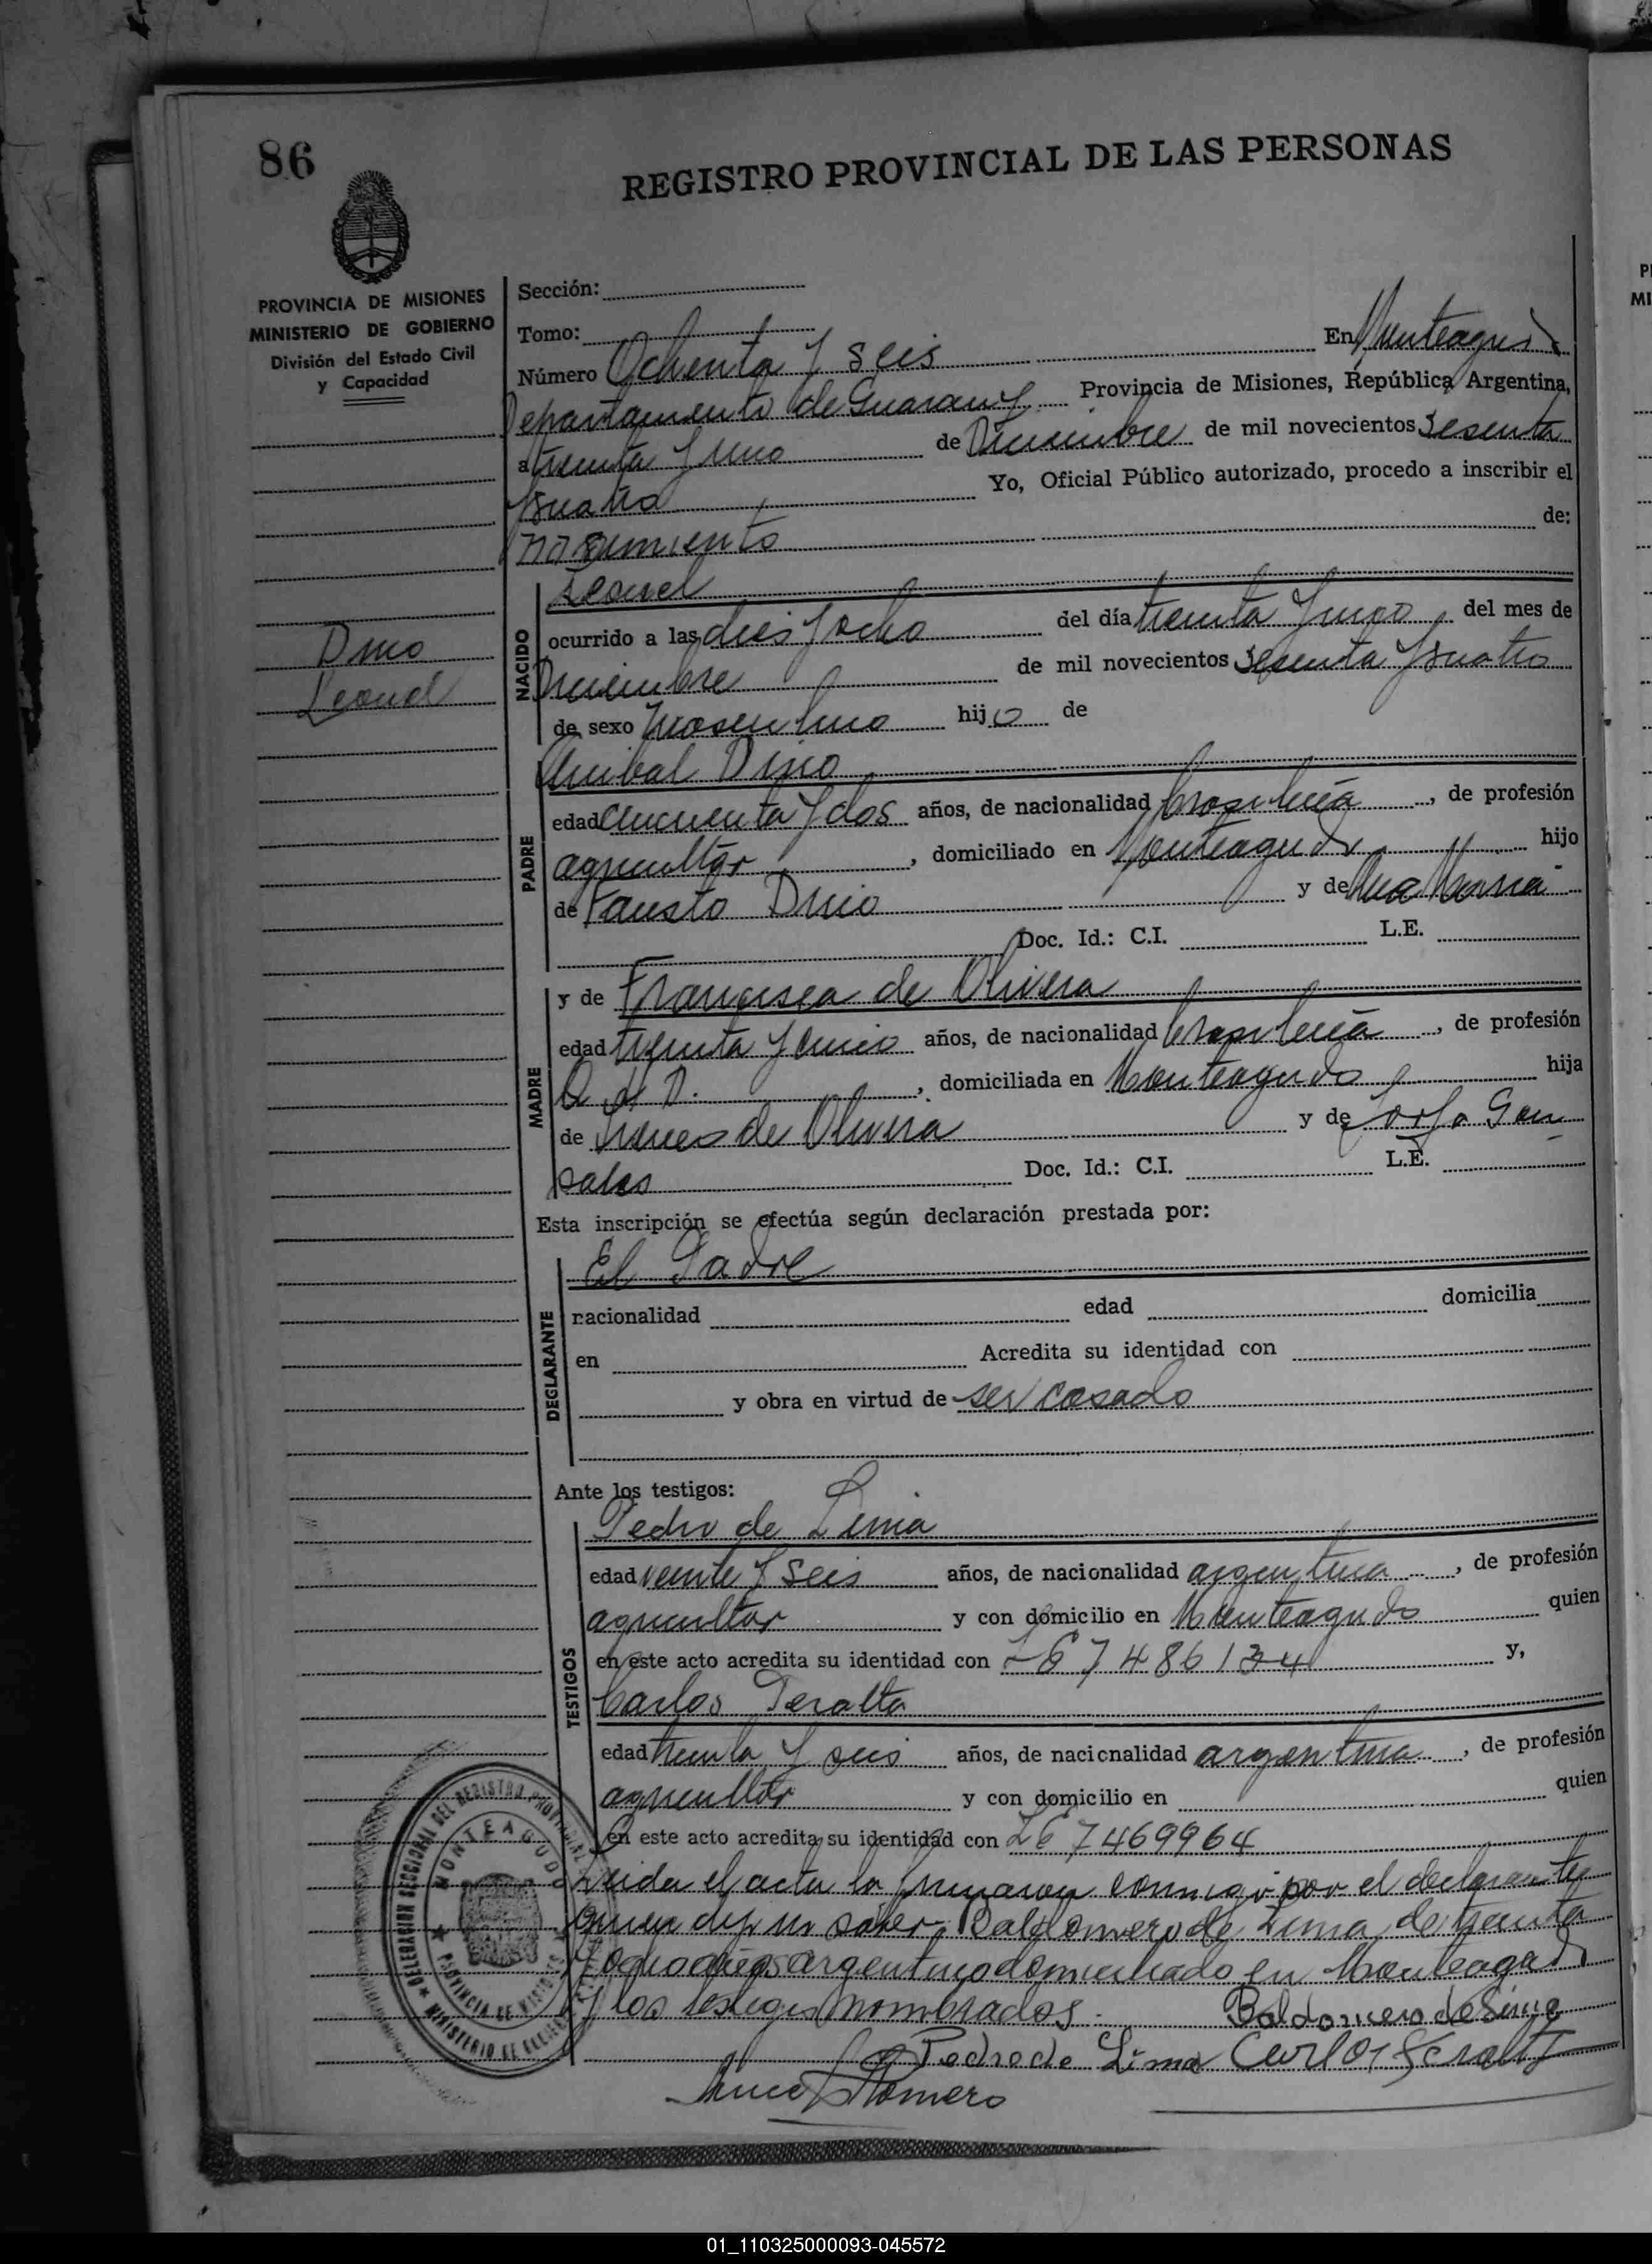 86
REGISTRO PROVINCIAL DE LAS PERSONAS
PROVINCIA DE MISIONES
MINISTERIO DE GOBIERNO
División del Estado Civil
y Capacidad
Sección:
Tomo:
Número Ochenta y seis En Monteagudo
Departamento de Guarany Provincia de Misiones, República Argentina,
a treinta y uno de Diciembre de mil novecientos Sesenta
y cuatro Yo, Oficial Público autorizado, procedo a inscribir el
nacimiento de:
Dino
Leonel
NACIDO
Leonel
ocurrido a las dies y ocho del día treinta y uno del mes de
Diciembre de mil novecientos Sesenta y cuatro
de sexo masculino hijo de
PADRE
Anibal Dino
edad cincuenta y dos años, de nacionalidad brasileña, de profesión
agricultor, domiciliado en Monteagudo hijo
de Fausto Dino y de Ana Maria
Doc. Id.: C.I. L.E.
MADRE
y de Francisca de Olivera
edad treinta y cinco años, de nacionalidad brasileña, de profesión
Q. H. D., domiciliada en Monteagudo hija
de de Olivera y de Gon
sales Doc. Id.: C.I. L.E.
Esta inscripción se efectúa según declaración prestada por:
DECLARANTE
El Padre
nacionalidad edad domicilia
en Acredita su identidad con
y obra en virtud de ser casado
Ante los testigos:
TESTIGOS
Pedro de Lima
edad veinte y seis años, de nacionalidad argentina, de profesión
agricultor y con domicilio en Monteagudo quien
en este acto acredita su identidad con 7486134 y,
Carlos Peralta
edad treinta y seis años, de nacionalidad argentina, de profesión
agricultor y con domicilio en quien
en este acto acredita su identidad con LE 7469964
Leida el acta la firmaron conmigo por el declarante
quien dijo no saber Baldomero de Lima, de treinta
y ocho años argentino domiciliado en Monteagudo
y los testigos nombrados.
Baldomero de Lima
Pedro de Lima Carlos Peralta
Romero
DELEGACION SECCIONAL DEL REGISTRO PROVINCIAL
MONTEAGUDO
PROVINCIA DE MISIONES
01_110325000093-045572